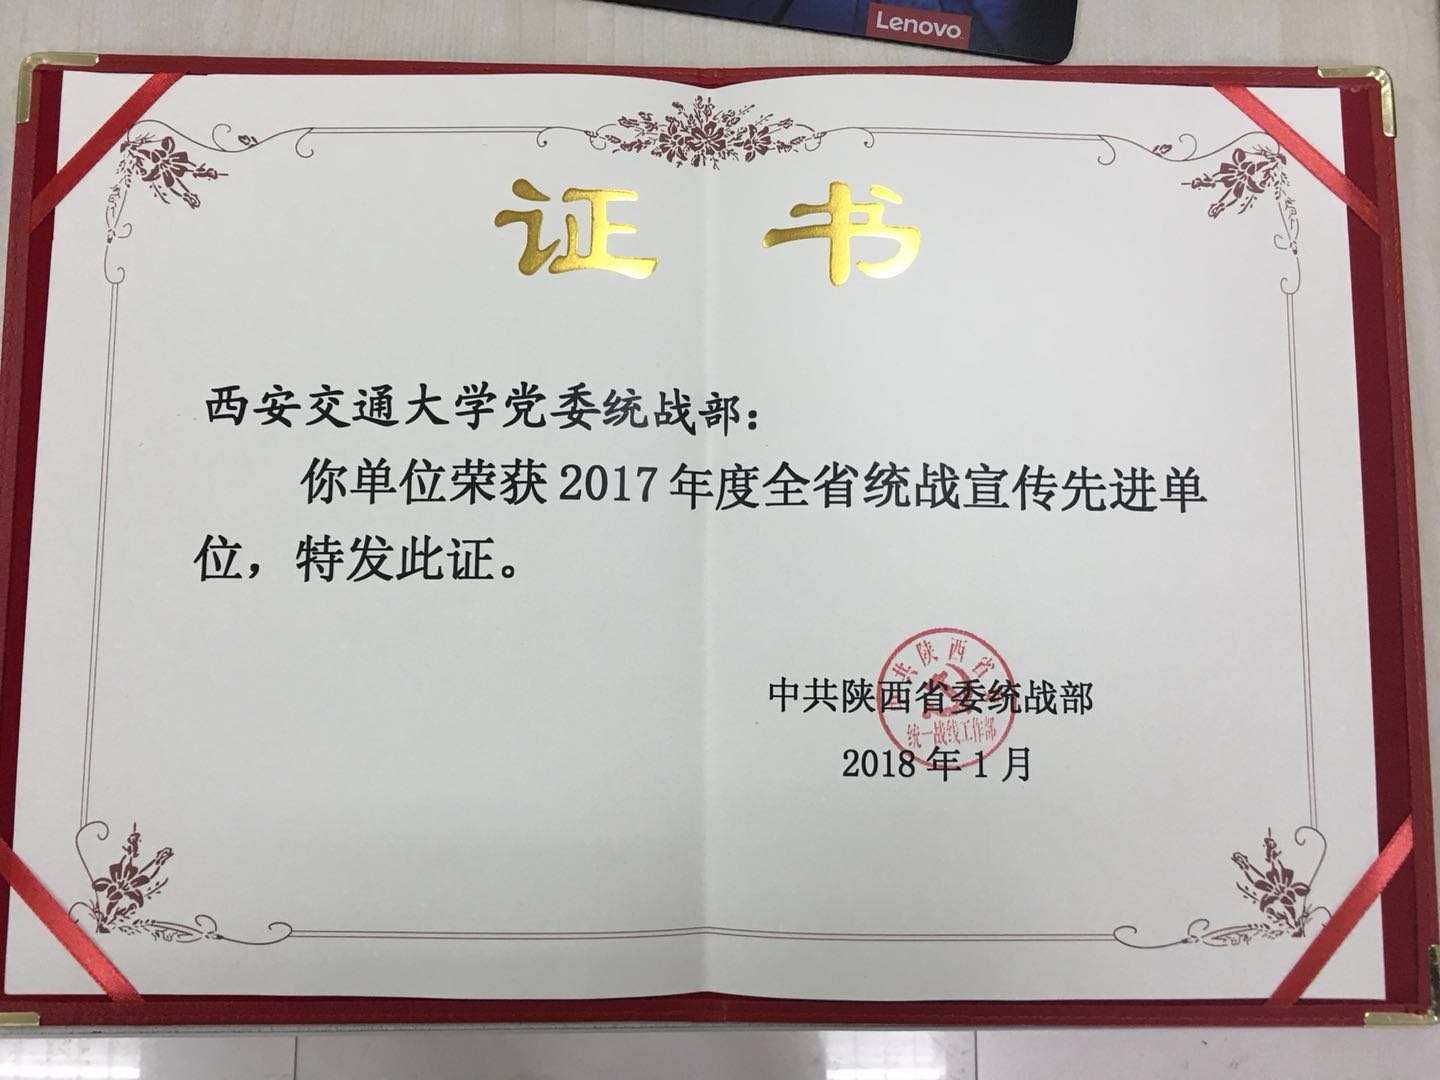 Lenovo
证书
西安交通大学党委统战部：
你单位荣获2017年度全省统战宣传先进单
位，特发此证。
中共陕西省委统战部
2018年1月
共陕西省
统一战线工作部